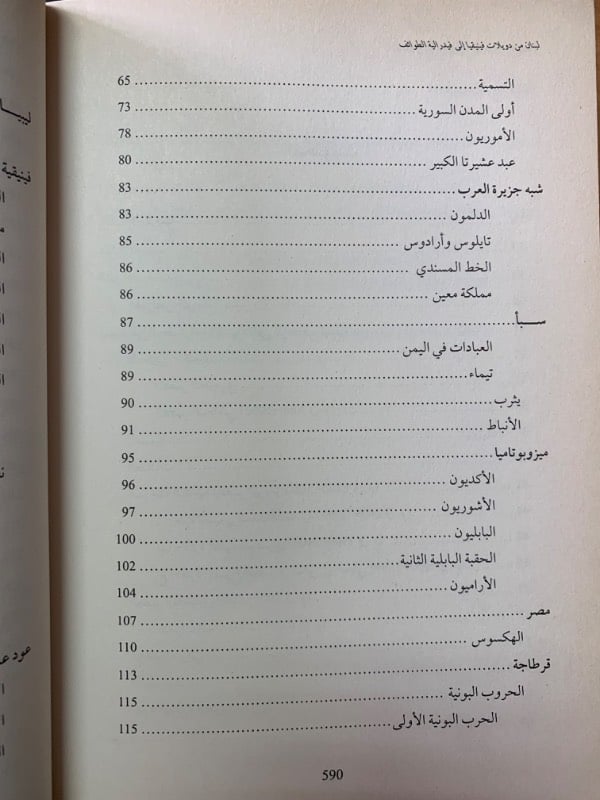 لبنان من دويلات فينيقيا إلى فيدرالية الطوائف
التسمية 65
أولى المدن السورية 73
الأموريون 78
عبد عشيرتا الكبير 80
شبه جزيرة العرب 83
الدلمون 83
تايلوس وأرادوس 85
الخط المسندي 86
مملكة معين 86
ســبأ 87
العبادات في اليمن 89
تيماء 89
يثرب 90
الأنباط 91
ميزوبوتاميا 95
الأكديون 96
الأشوريون 97
البابليون 100
الحقبة البابلية الثانية 102
الأراميون 104
مصر 107
الهكسوس 110
قرطاجة 113
الحروب البونية 115
الحرب البونية الأولى 115
590
فينيقية